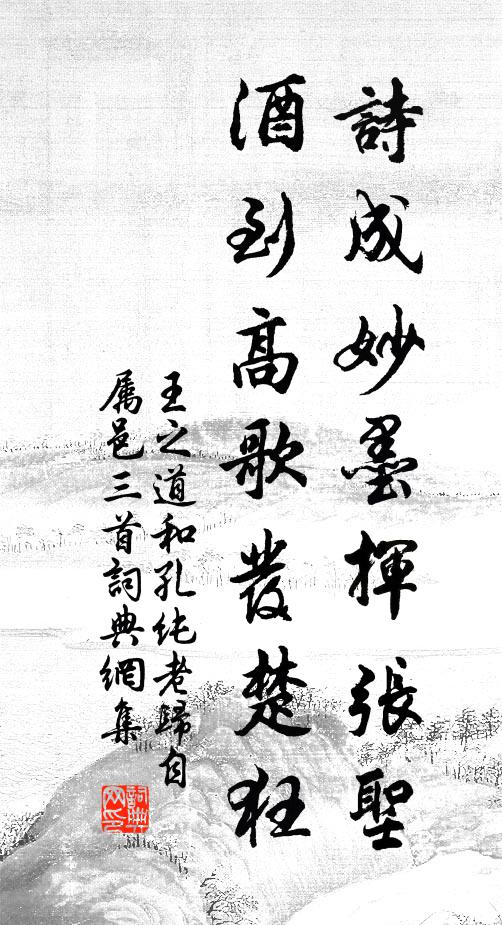 詩成妙墨揮張聖
酒到高歌發楚狂
王之道和孔純老歸自
屬邑三首詞典網集